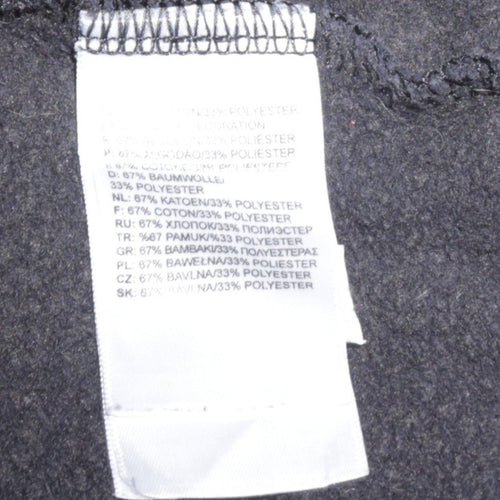 COTTON/33% POLYESTER
67% ALGODÓN/33% POLIÉSTER
P: 67% ALGODÃO/33% POLIÉSTER
D: 67% BAUMWOLLE/
33% POLYESTER
NL: 67% KATOEN/33% POLYESTER
F: 67% COTON/33% POLYESTER
RU: 67% ХЛОПОК/33% ПОЛИЭСТЕР
TR: %67 PAMUK/%33 POLYESTER
GR: 67% BAMBAKI/33% ΠΟΛΥΕΣΤΕΡΑΣ
PL: 67% BAWEŁNA/33% POLIESTER
CZ: 67% BAVLNA/33% POLYESTER
SK: 67% BAVLNA/33% POLYESTER